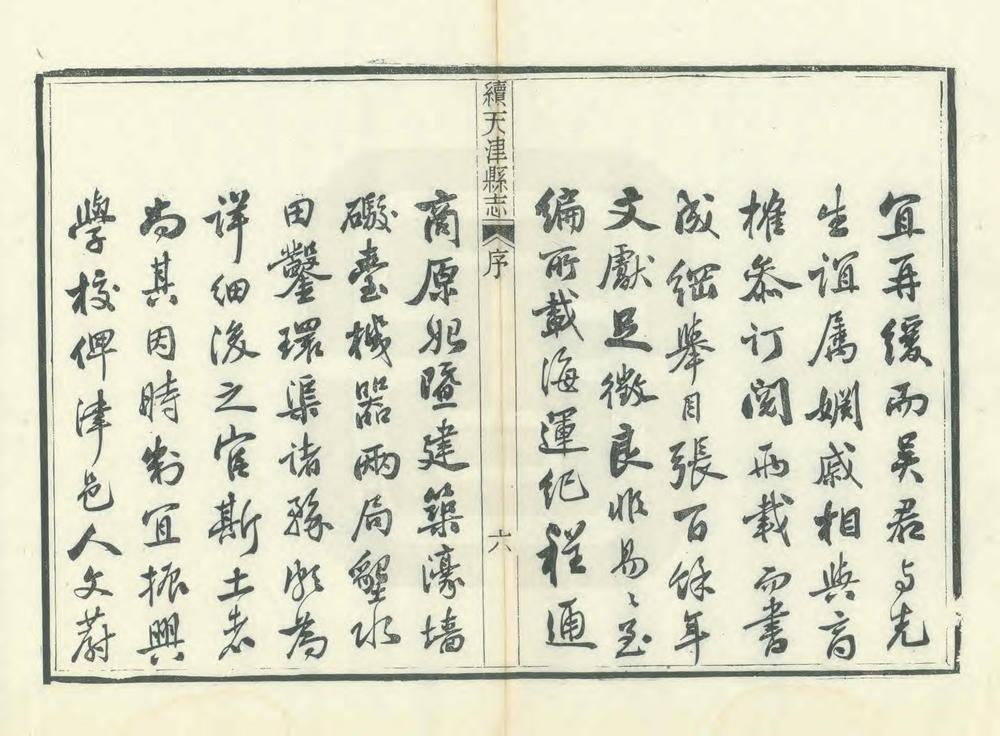 宜再緩而吳君与先
生誼属姻戚相與商
榷叅订閱兩載而書
成綱舉目張百餘年
文獻足徵良非易〻至
編所載海運紀程通
續天津縣志
序
六
商原起暨建築濠墻
礮臺機器兩局墾水
田鑿環渠諸務頗為
詳細後之官斯土者
尚其因時制宜振興
學校俾津邑人文蔚